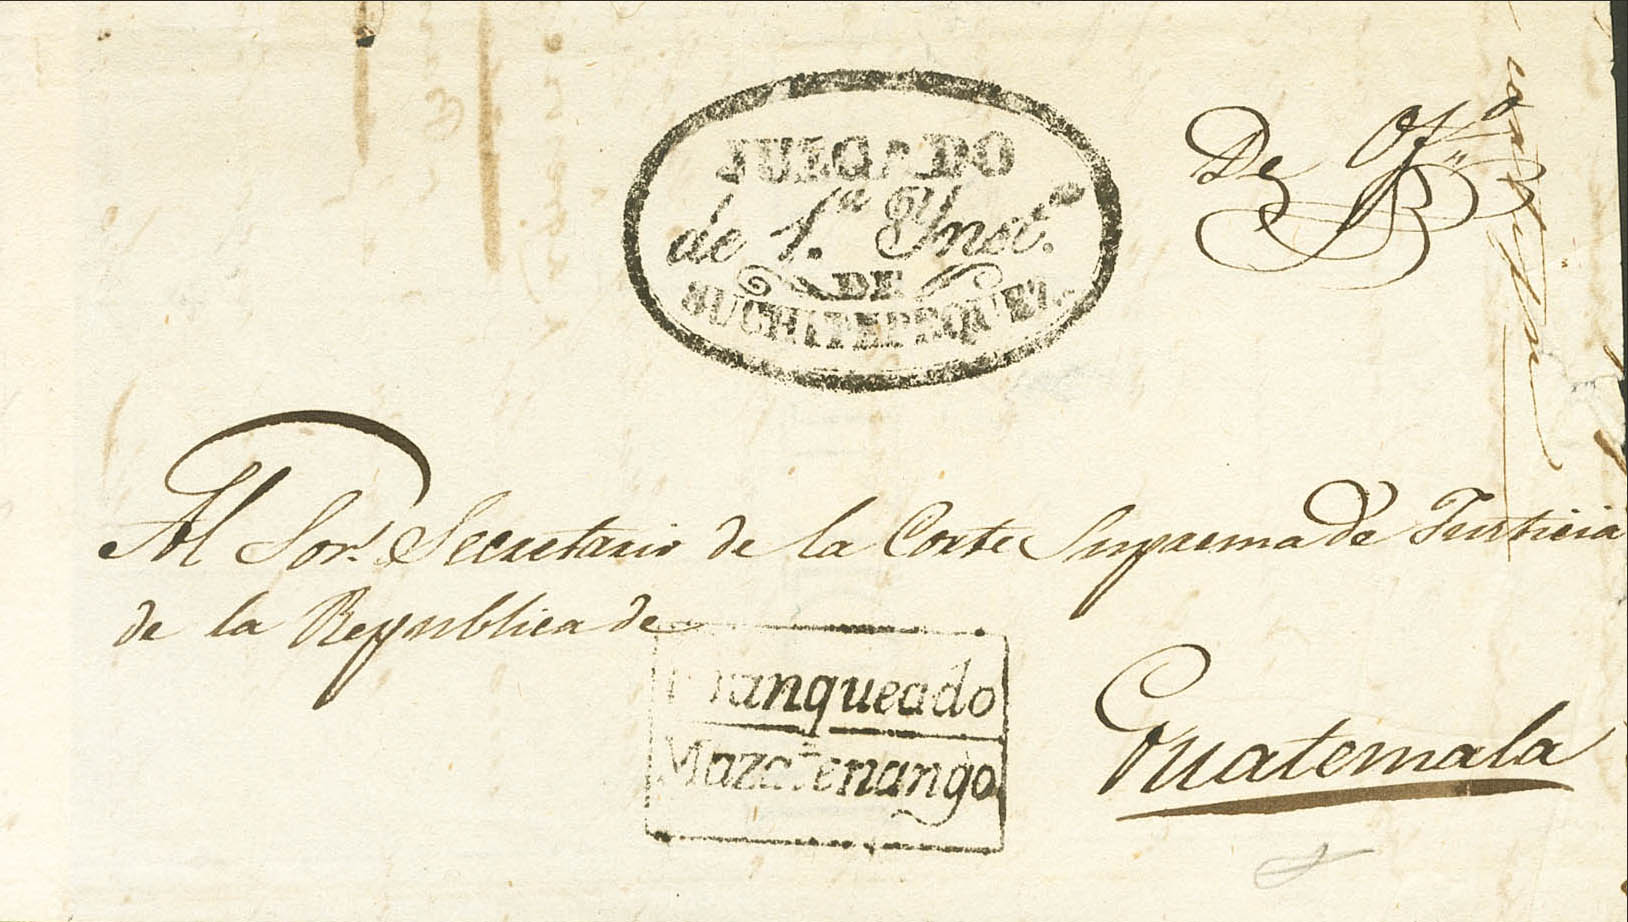 JUZGADO
de 1.ª Ynst.ª
DE
SUCHITEPEQUEZ.
De Of.º
Al Sor. Secretario de la Corte Suprema de Justicia
de la Republica de
Franqueado
Mazatenango.
Guatemala